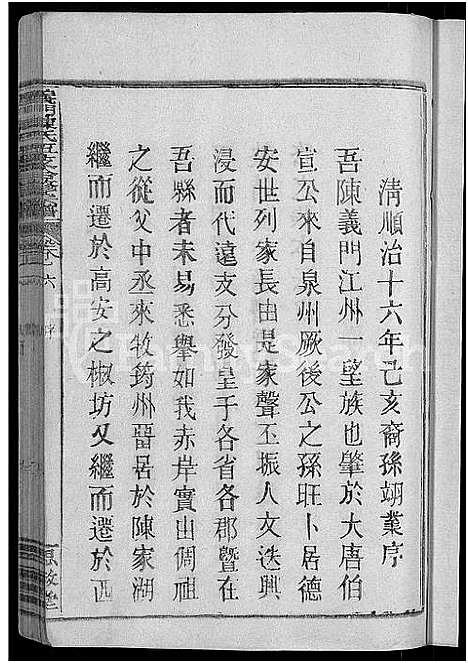 清順治十六年己亥裔孫翊業序
吾陳義門江州一望族也肇於大唐伯
宣公來自泉州厥後公之孫旺卜居德
安世列家長由是家聲丕振人文迭興
浸而代遠支分發呈于各省各郡暨在
吾縣者未易悉舉如我赤岸實出倜祖
之從父中丞來牧筠州畱居於陳家湖
繼而遷於高安之椒坊又繼而遷於西
義門陳氏
卷
六
序